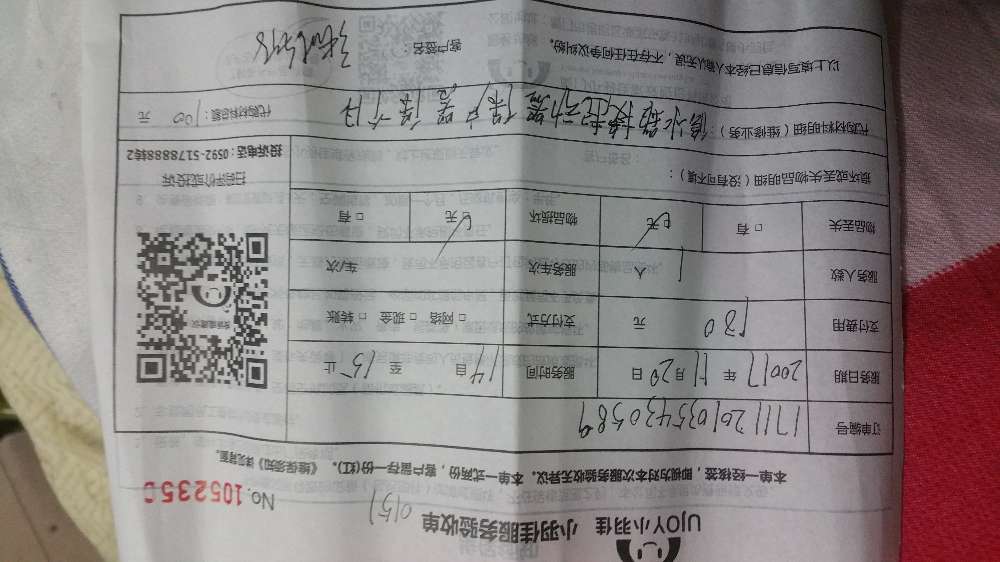 UJOY小羽佳 小羽佳服务验收单 0151
No.
本单一经核签，即视为对本次服务验收无异议。本单一式两份，客户留存一份(红)。《维保须知》详见背面。
订单编号 171120103543 0589
服务日期 20017年 11月20日 服务时间 14自 至 15止
支付费用 元 支付方式 □网络 □现金 □转账
服务人数 1人 服务车次 车/次
物品丢失 □有 □无 物品损坏 □无 □有
损坏或丢失物品明细（没有可不填）：
扫码评价或投诉
投诉电话：0592-5178888转2
代购材料明细（维修业务）：
代购材料总额：100 元
以上填写信息已经本人确认无误，不存在任何争议纠纷。 客户签名：